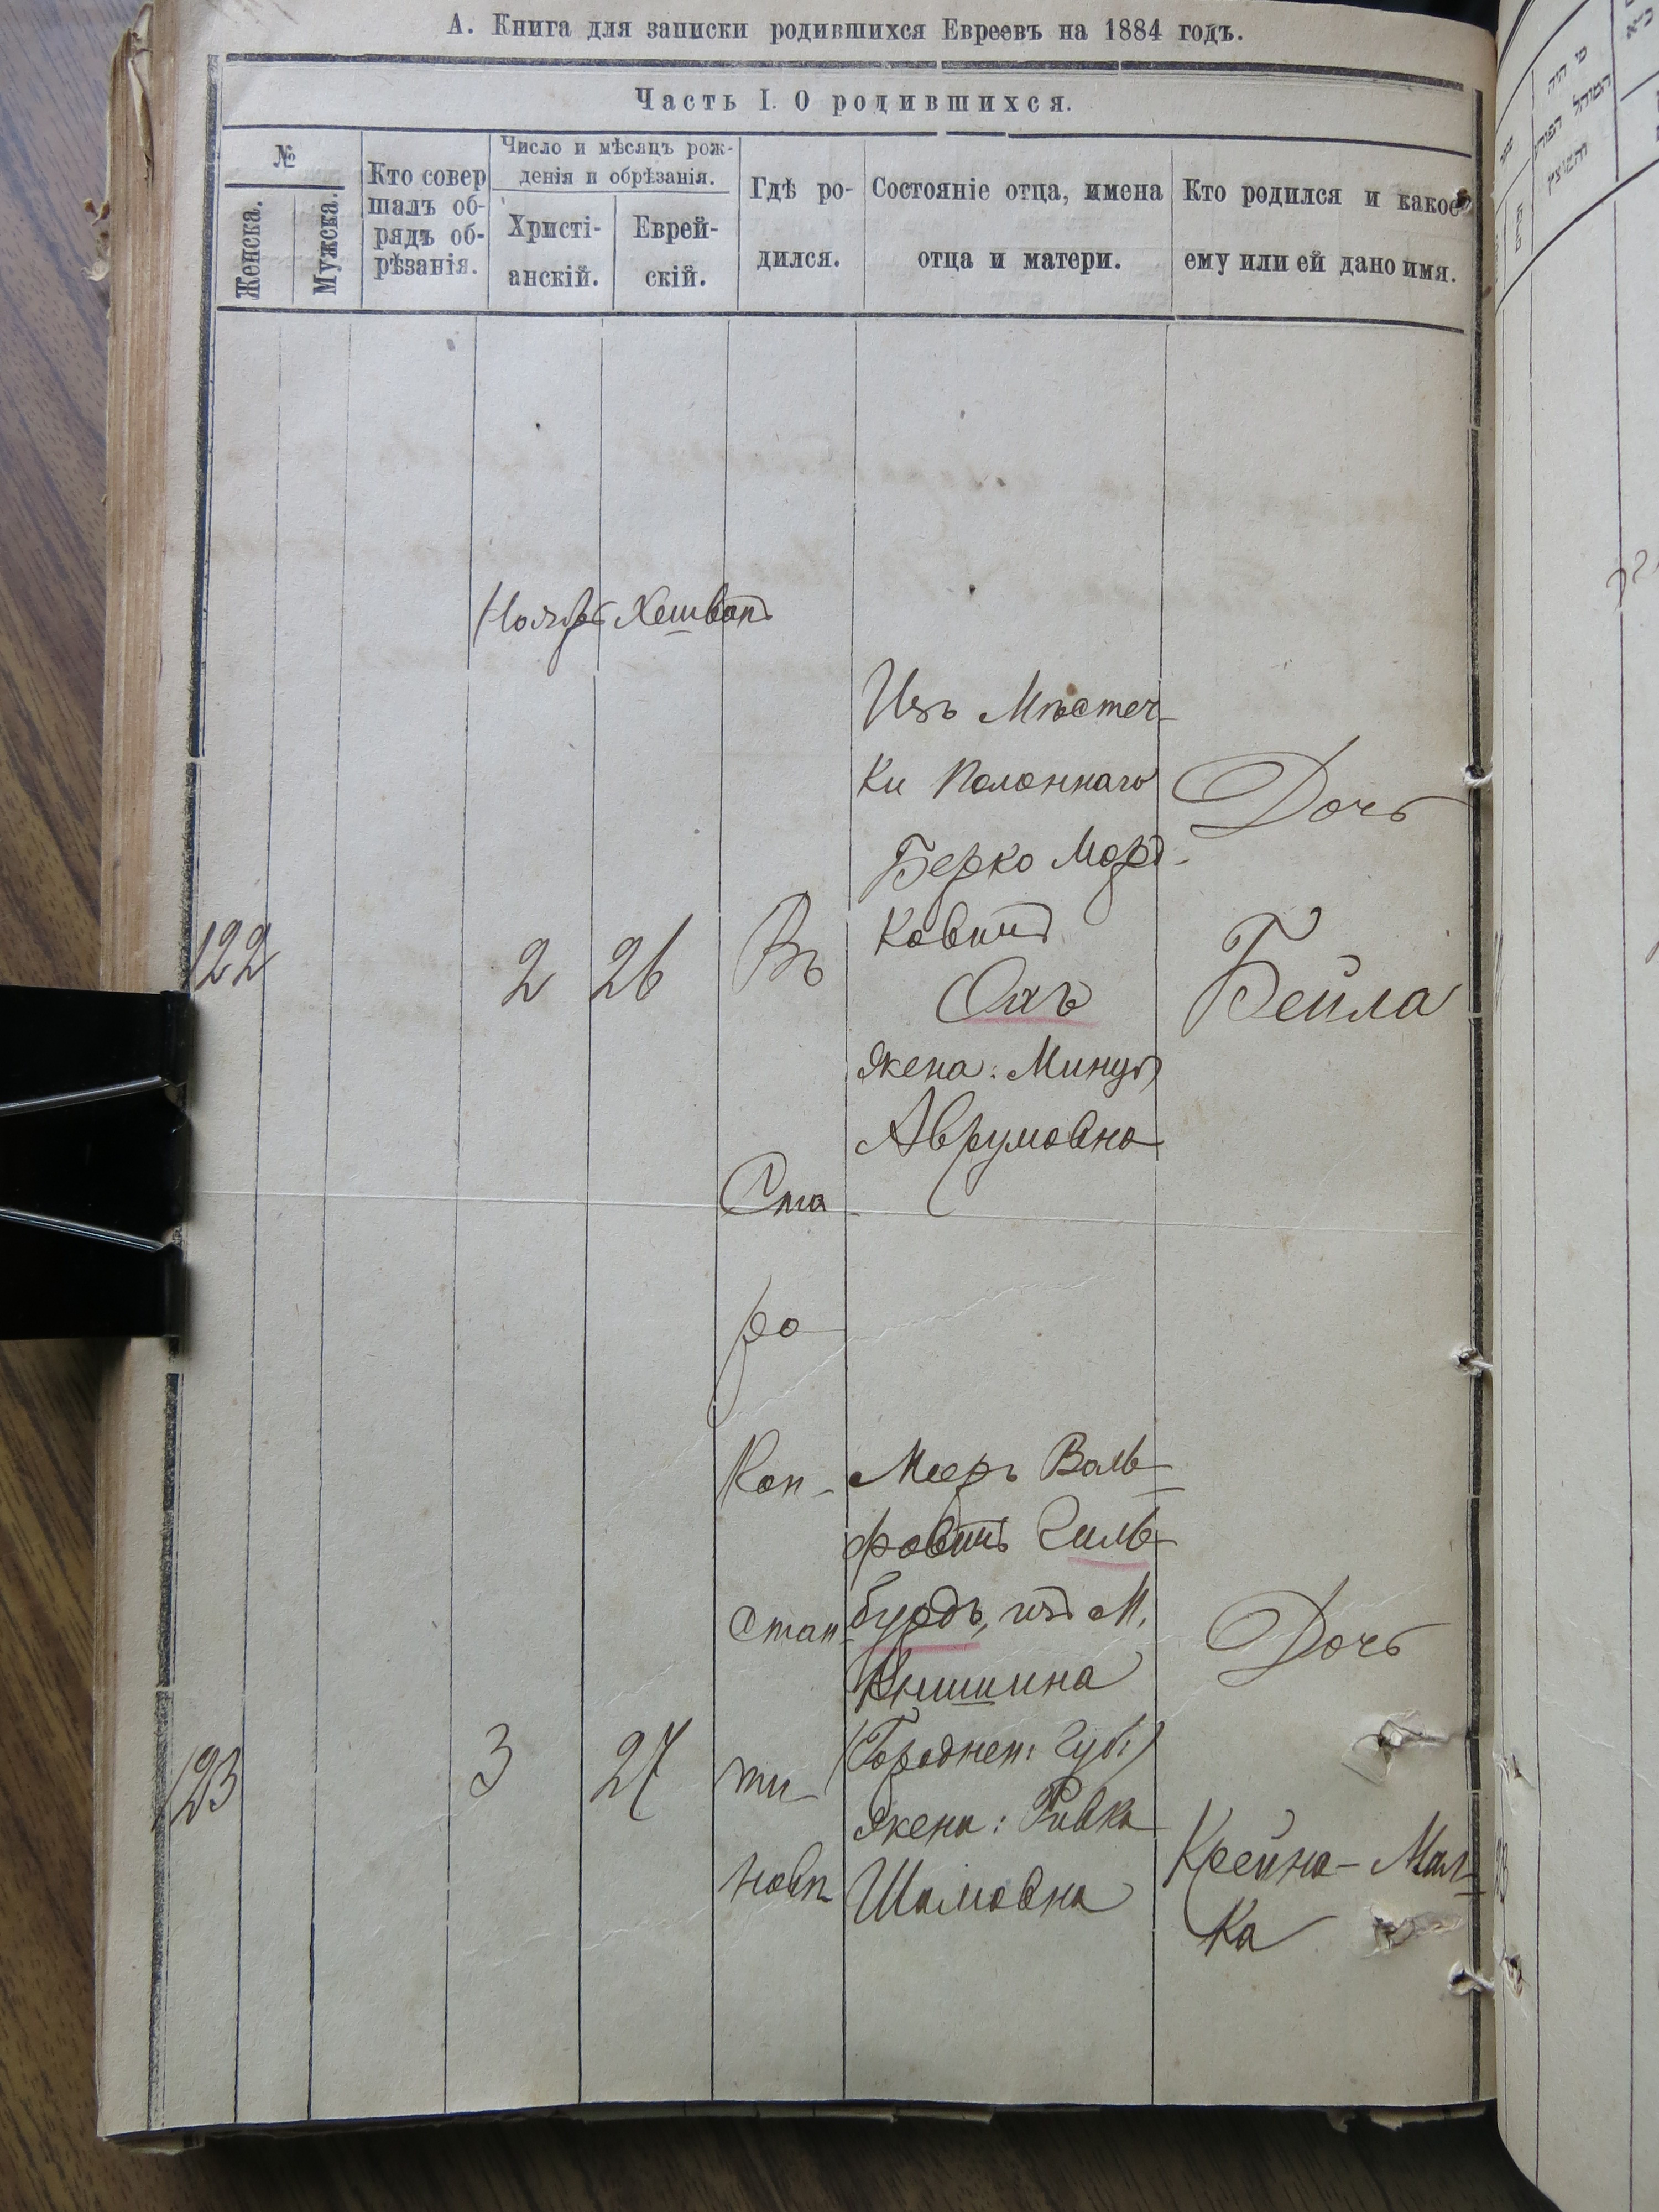 А. Книга для записки родившихся Евреевъ на 1884 годъ.
Часть I. О родившихся.
№
Женска.
Мужска.
Кто совер
шалъ об-
рядъ об-
рѣзанія.
Число и мѣсяцъ рож-
денія и обрѣзанія.
Христі-
анскій.
Еврей-
скій.
Гдѣ ро-
дился.
Состояніе отца, имена
отца и матери.
Кто родился и какое
ему или ей дано имя.
Ноябрь Хешванъ
122
2
26
Въ
Изъ Мѣстеч-
ки Полоннаго
Берко Морд-
ковичъ
жена: Минця
Аврумовна
Дочь
Бейла
Ста-
ро
Кон-
стан-
ти
новѣ
123
3
27
Мееръ Воль-
фовичъ Гиль-
бурдъ, изъ М.
Книшина
(Городнен: Губ:)
жена: Ривка
Шимовна
Дочь
Крейна-Мал-
ка